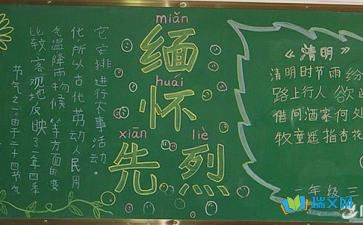 它安排进行农事活动。
化所以古代劳动人民用
气温降雨物候等方面的变
比较客观地反映了一年四季
节气之一。由于二十四节气
miǎn
缅
huái
怀
xiān liè
先烈
《清明》
清明时节雨
路上行人欲
借问酒家何处
牧童遥指杏花
一年级三
瑞文网